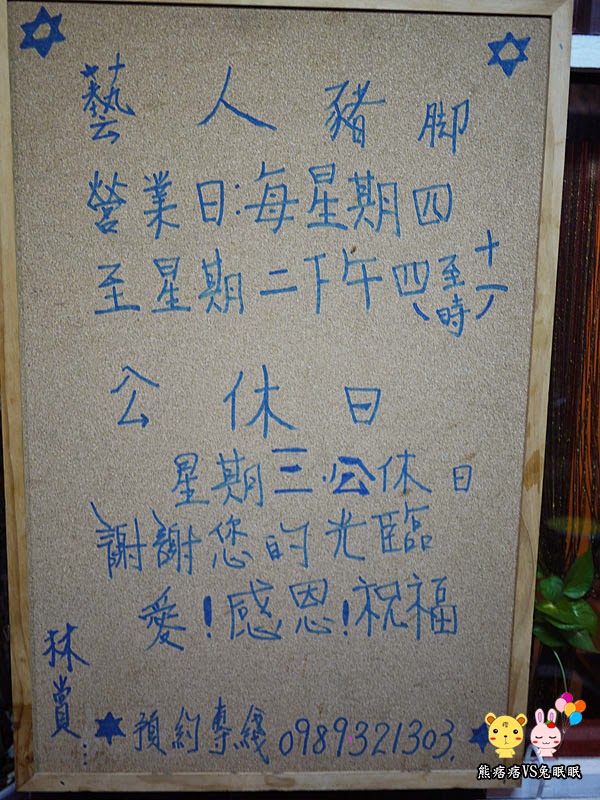 藝人豬脚
營業日:每星期四
至星期二下午四至十一時
公休日
星期三.公休日
謝謝您的光臨
愛!感恩!祝福
林賞...
預約專綫0989321303.
熊痞痞VS兔眠眠